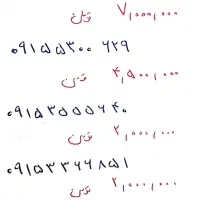 ۷,۰۰۰,۰۰۰ تومان
۰۹۱۵۵۳۰۰۶۲۹
۴,۵۰۰,۰۰۰ تومان
۰۹۱۵۳۵۵۵۶۴۰
۲,۰۰۰,۰۰۰ تومان
۰۹۱۵۳۳۶۶۸۵۱
۲,۰۰۰,۰۰۰ تومان